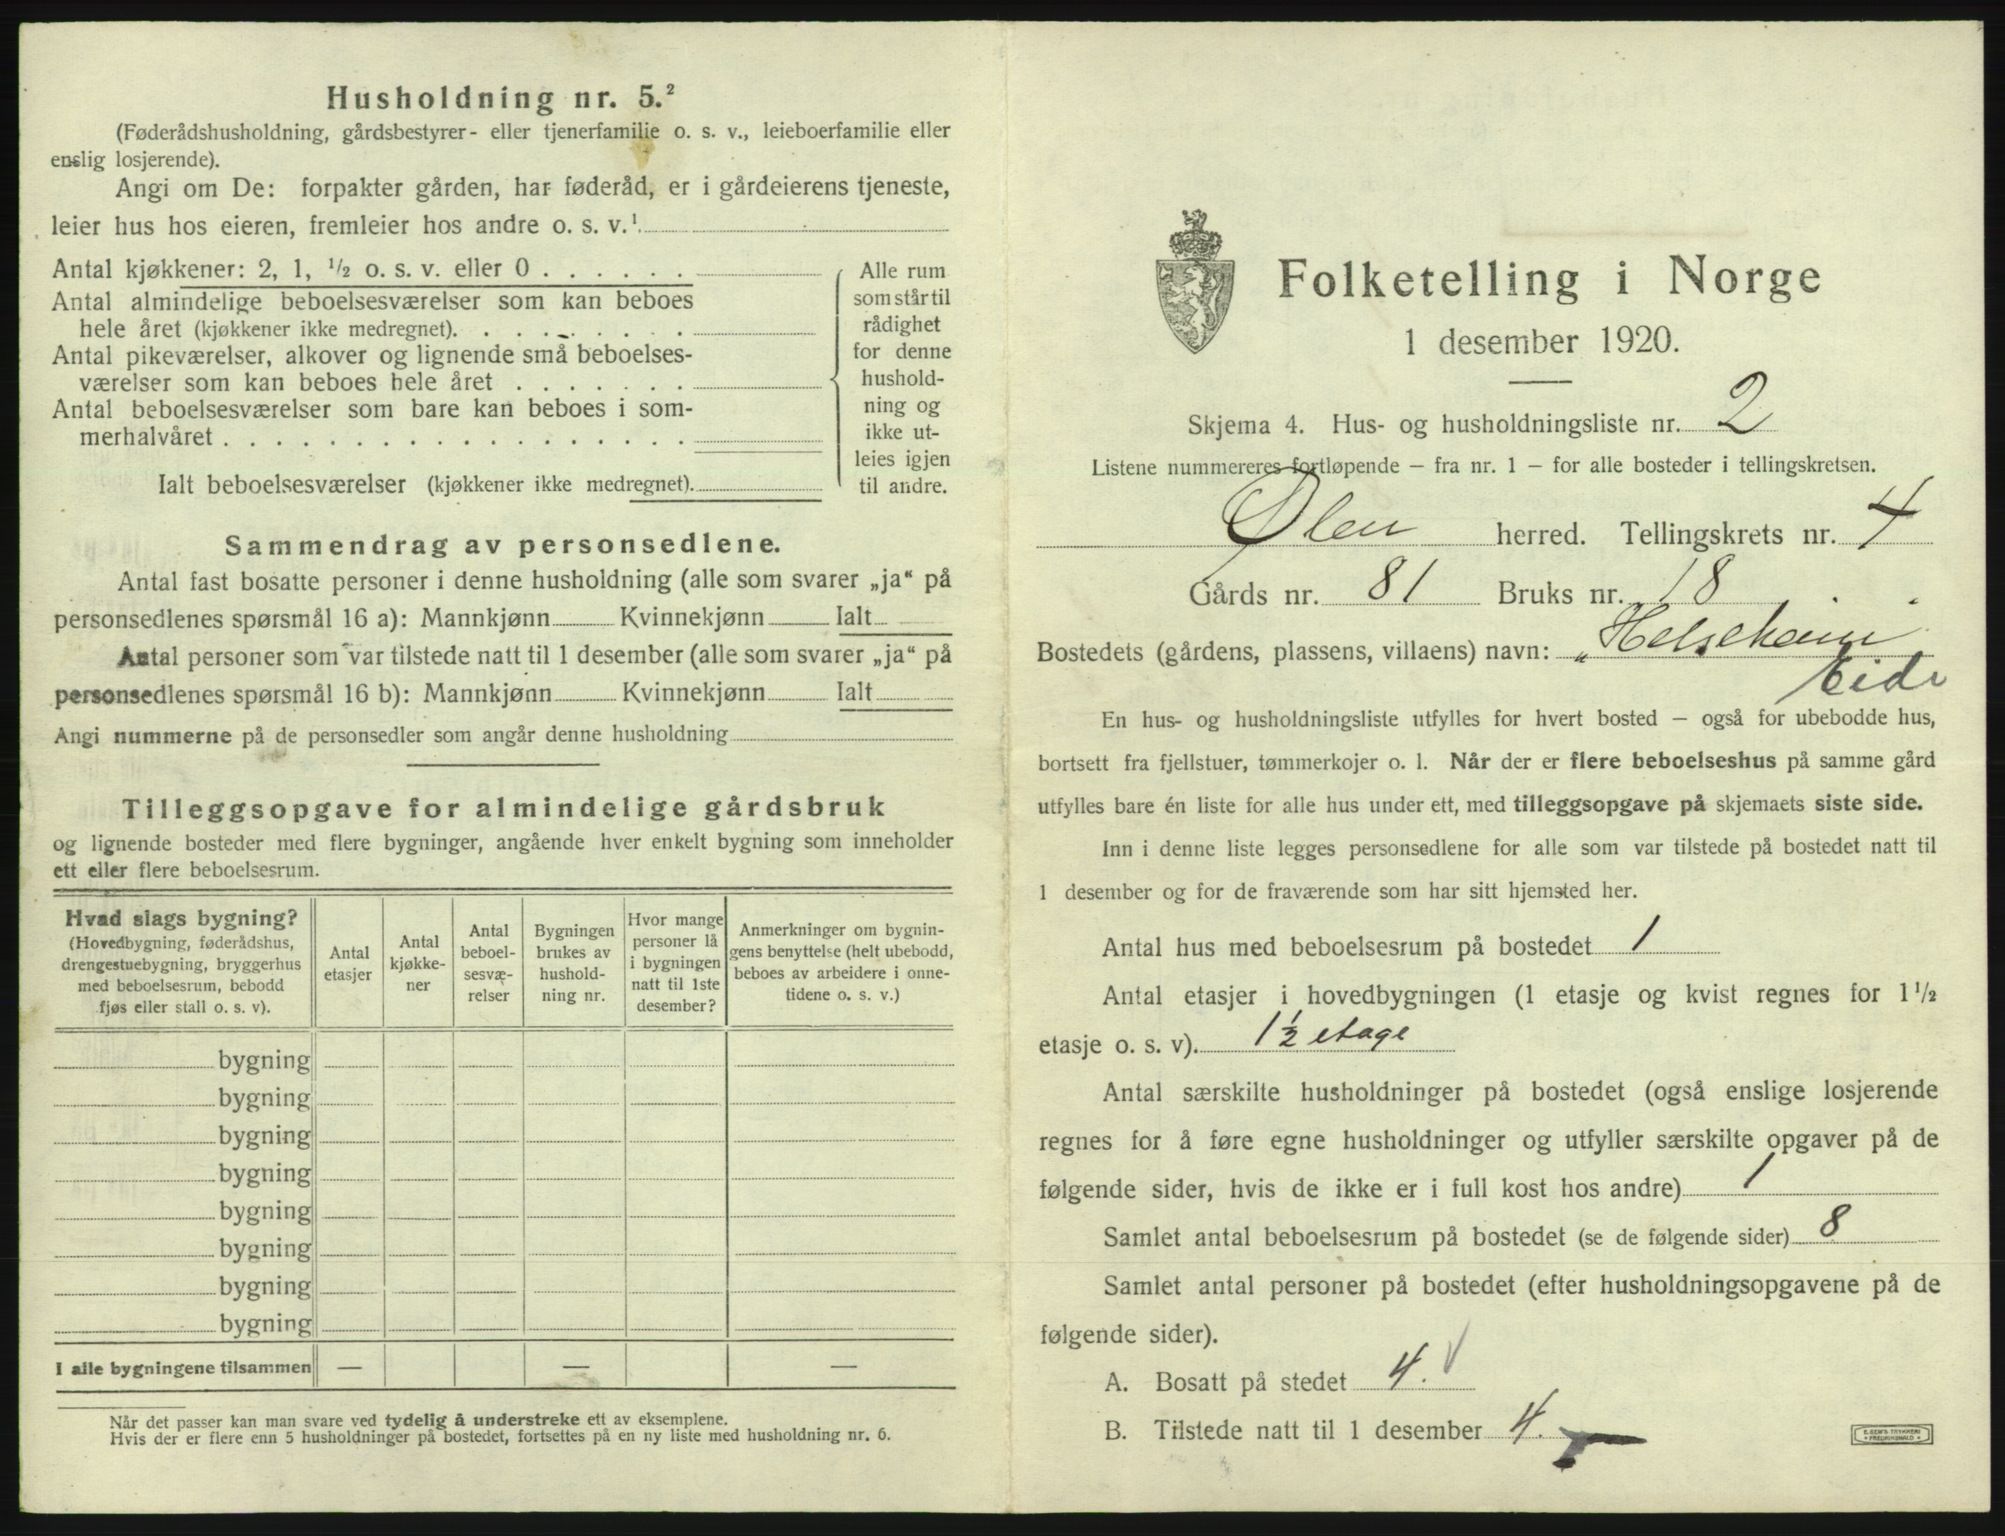 Husholdning nr. 5.²
(Føderådshusholdning, gårdsbestyrer- eller tjenerfamilie o. s. v., leieboerfamilie eller
enslig losjerende).
Angi om De: forpakter gården, har føderåd, er i gårdeierens tjeneste,
leier hus hos eieren, fremleier hos andre o. s. v.¹
Antal kjøkkener: 2, 1, ½ o. s. v. eller 0 . . . . . .
Antal almindelige beboelsesværelser som kan beboes
hele året (kjøkkener ikke medregnet). . . . . . . .
Antal pikeværelser, alkover og lignende små beboelses-
værelser som kan beboes hele året . . . . . . .
Antal beboelsesværelser som bare kan beboes i som-
merhalvåret . . . . . . . . . . . . . . . . .
Ialt beboelsesværelser (kjøkkener ikke medregnet).
Alle rum
som står til
rådighet
for denne
hushold-
ning og
ikke ut-
leies igjen
til andre.
Sammendrag av personsedlene.
Antal fast bosatte personer i denne husholdning (alle som svarer „ja“ på
personsedlenes spørsmål 16 a): Mannkjønn Kvinnekjønn Ialt
Antal personer som var tilstede natt til 1 desember (alle som svarer „ja“ på
personsedlenes spørsmål 16 b): Mannkjønn Kvinnekjønn Ialt
Angi nummerne på de personsedler som angår denne husholdning
Tilleggsopgave for almindelige gårdsbruk
og lignende bosteder med flere bygninger, angående hver enkelt bygning som inneholder
ett eller flere beboelsesrum.
Hvad slags bygning?
(Hovedbygning, føderådshus,
drengestuebygning, bryggerhus
med beboelsesrum, bebodd
fjøs eller stall o. s. v).
Antal
etasjer
Antal
kjøkke-
ner
Antal
beboel-
sesvæ-
relser
Bygningen
brukes av
hushold-
ning nr.
Hvor mange
personer lå
i bygningen
natt til 1ste
desember?
Anmerkninger om bygnin-
gens benyttelse (helt ubebodd,
beboes av arbeidere i onne-
tidene o. s. v.)
bygning
bygning
bygning
bygning
bygning
bygning
bygning
bygning
I alle bygningene tilsammen — — —
Når det passer kan man svare ved tydelig å understreke ett av eksemplene.
Hvis der er flere enn 5 husholdninger på bostedet, fortsettes på en ny liste med husholdning nr. 6.
Folketelling i Norge
1 desember 1920.
Skjema 4. Hus- og husholdningsliste nr. 2
Listene nummereres fortløpende — fra nr. 1 — for alle bosteder i tellingskretsen.
Ølen herred. Tellingskrets nr. 4
Gårds nr. 81 Bruks nr. 18
Bostedets (gårdens, plassens, villaens) navn: „Helseheim
Eide
En hus- og husholdningsliste utfylles for hvert bosted — også for ubebodde hus,
bortsett fra fjellstuer, tømmerkojer o. l. Når der er flere beboelseshus på samme gård
utfylles bare én liste for alle hus under ett, med tilleggsopgave på skjemaets siste side.
Inn i denne liste legges personsedlene for alle som var tilstede på bostedet natt til
1 desember og for de fraværende som har sitt hjemsted her.
Antal hus med beboelsesrum på bostedet 1
Antal etasjer i hovedbygningen (1 etasje og kvist regnes for 1½
etasje o. s. v). 1½ etage
Antal særskilte husholdninger på bostedet (også enslige losjerende
regnes for å føre egne husholdninger og utfyller særskilte opgaver på de
følgende sider, hvis de ikke er i full kost hos andre) 1
Samlet antal beboelsesrum på bostedet (se de følgende sider) 8
Samlet antal personer på bostedet (efter husholdningsopgavene på de
følgende sider).
A. Bosatt på stedet 4.
B. Tilstede natt til 1 desember 4.